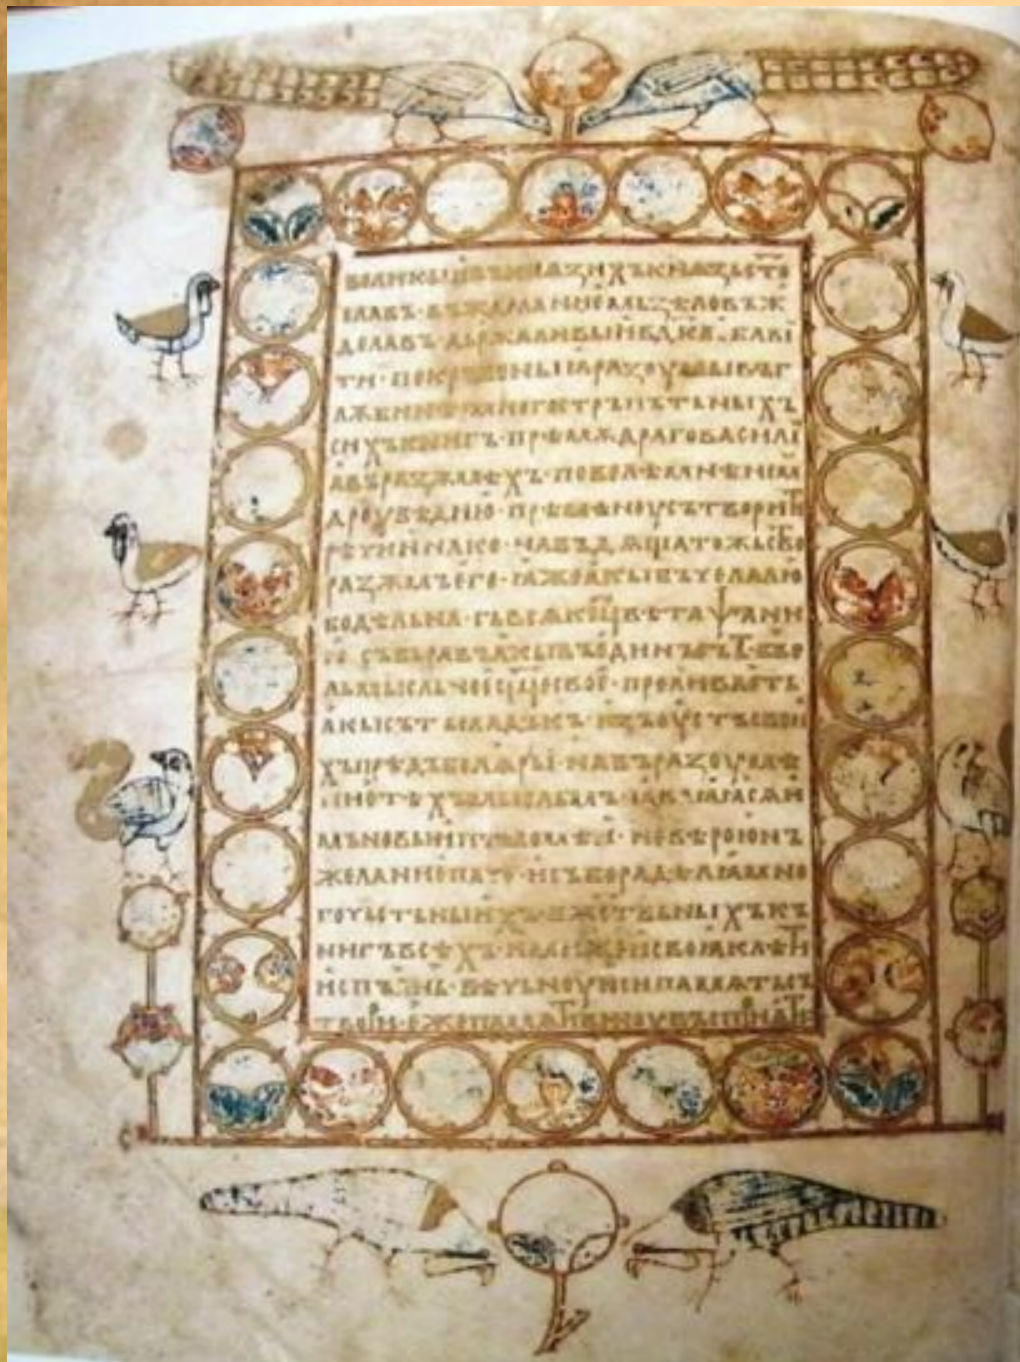 ВЕЛИКЫИ ВЪ КНѦЗИХЪ КНѦЗЬ СТО
СЛАВЪ · ВЪЖДЕЛАНИѤМЬ ЗѢЛО ВЪЖ
ДЕЛАВЪ · ДЬРЖАЛИВЫИ ВЛДКА · ОБАВІ
ТИ · ПОКРЪВЕНЫꙖ РАЗОУМЫ ВЪ ГЛ
ѪБИНѢ МНОГОСТРЪПЪТЬНЫХЪ
СИХЪ КЪНИГЪ · ПРѢМѪДРАГО ВАСИЛІ
Ꙗ ВЪ РАЗОУМѢХЪ · ПОВЕЛѢ МЬНѢ НЕМ
ДРОУВѢДИЮ · ПРѢМѢНОУ СЪТВОРИТИ
РѢЧИ ИНАКО · НАБЪДѦЩА ТОЖЬСТВО
РАЗОУМЪ ЕГО · ꙖЖЕ АКЫ БЪЧЕЛА ЛЮ
БОДѢЛЬНА · СЪ ВСѦКОГО ЦВѢТА ПСАНИ
Ю СЪБЬРАВЪ АКЫ ВЪ ЕДИНЪ СЪТЪ · ВЪ ВЕ
ЛЬМЫСЛЬНОЕ СРДЦЕ СВОЕ · ПРОЛИВАѤТЬ
АКЫ СЪТЪ СЛАДЪКЪ · ИЗЪ ОУСТЪ СВОИ
ХЪ ПРѢДЪ БОЛꙖРЫ · НА ВЪРАЗОУМѢ
НИѤ ТѢХЪ МЫСЛЬМЪ · ꙖВЛꙖꙖСѦ И
МЪ НОВЫИ ПТОЛОМѢИ · НЕ ВѢРОЮ НЪ
ЖЕЛАНИѤМЬ ПАЧЕ · И СЪБОРА ДѢЛꙖ МНО
ГОЧЬСТЬНЫИХЪ БОЖЬСТВЬНЫХЪ КЪ
НИГЪ ВСѢХЪ · ИМИ ЖЕ И СВОꙖ КЛѢТИ
ИСПЪЛНЬ · ВѢЧЬНОУЮ СИ ПАМѦТЬ СЪ
ТВОРИ · ЕЖЕ ПАМѦТИ ВИНОУ ВЪСПРИѦТИ